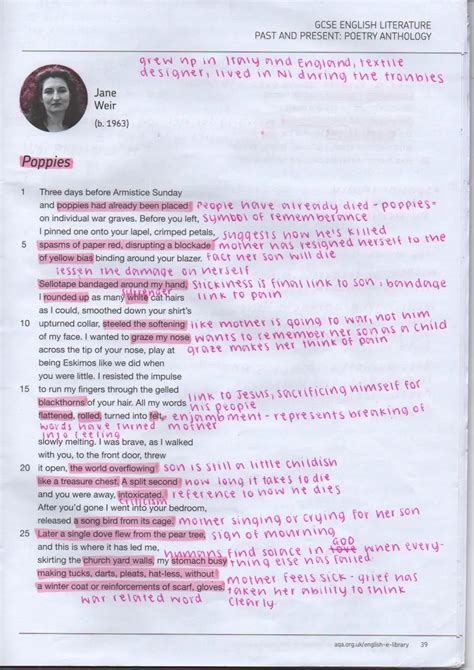 GCSE ENGLISH LITERATURE
PAST AND PRESENT: POETRY ANTHOLOGY
grew up in Italy and England, textile
designer, lived in NI during the troubles
Jane
Weir
(b. 1963)
Poppies
1 Three days before Armistice Sunday
and poppies had already been placed People have already died - poppies=
on individual war graves. Before you left, symbol of rememberance
I pinned one onto your lapel, crimped petals, suggests how he's killed
5 spasms of paper red, disrupting a blockade mother has resigned herself to the
of yellow bias binding around your blazer. fact her son will die
lessen the damage on herself
Sellotape bandaged around my hand, Stickiness is final link to son, bandage
surrender
I rounded up as many white cat hairs link to pain
as I could, smoothed down your shirt's
10 upturned collar, steeled the softening like mother is going to war, not him
of my face. I wanted to graze my nose wants to remember her son as a child
across the tip of your nose, play at graze makes her think of pain
being Eskimos like we did when
you were little. I resisted the impulse
15 to run my fingers through the gelled link to Jesus, sacrificing himself for
blackthorns of your hair. All my words his people
flattened, rolled, turned into felt, enjambment - represents breaking of
words have turned mother
into feeling
slowly melting. I was brave, as I walked
with you, to the front door, threw
20 it open, the world overflowing son is still a little childish
like a treasure chest. A split second how long it takes to die
and you were away, intoxicated. reference to how he dies
criticism
After you'd gone I went into your bedroom,
released a song bird from its cage. mother singing or crying for her son
25 Later a single dove flew from the pear tree, sign of mourning
and this is where it has led me, humans find solace in love GOD when every-
skirting the church yard walls, my stomach busy thing else has failed
making tucks, darts, pleats, hat-less, without mother feels sick - grief has
a winter coat or reinforcements of scarf, gloves. taken her ability to think
war related word clearly.
aqa.org.uk/english-e-library 39